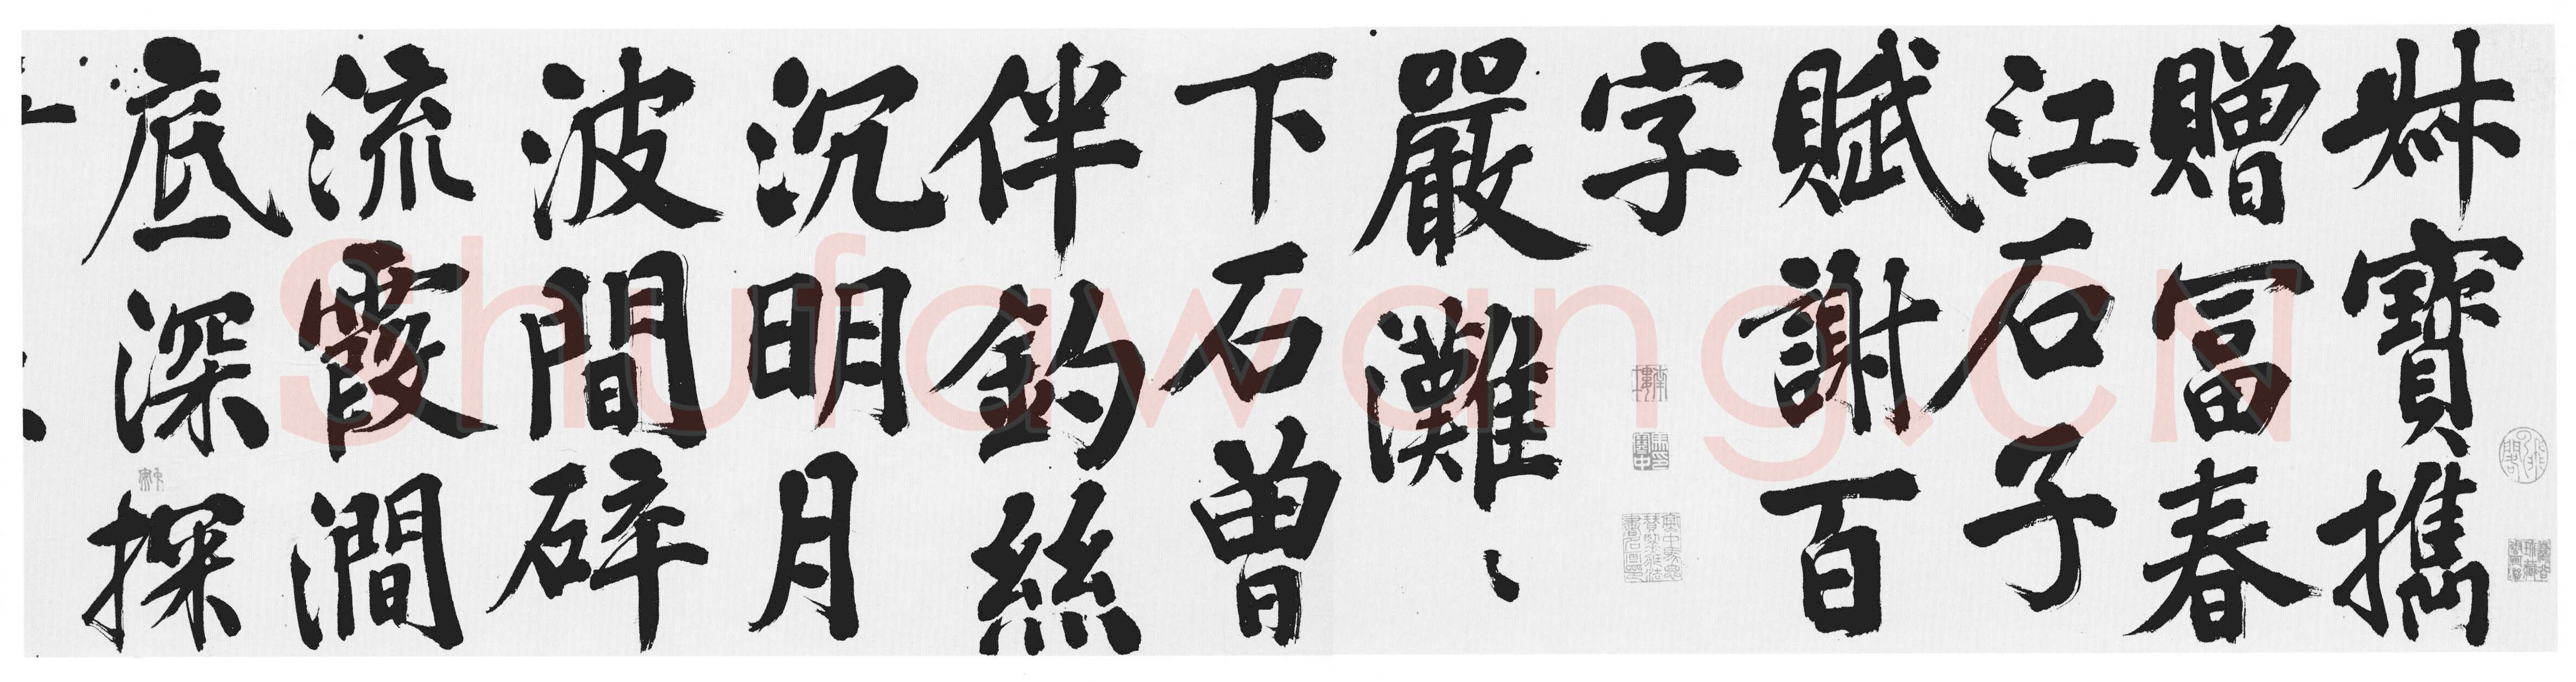 叔寶攜
贈冨春
江石子
賦謝百
字
嚴灘〻
下石曽
伴釣絲
沉明月
波間碎
流霞澗
底深探
Shufawang.CN